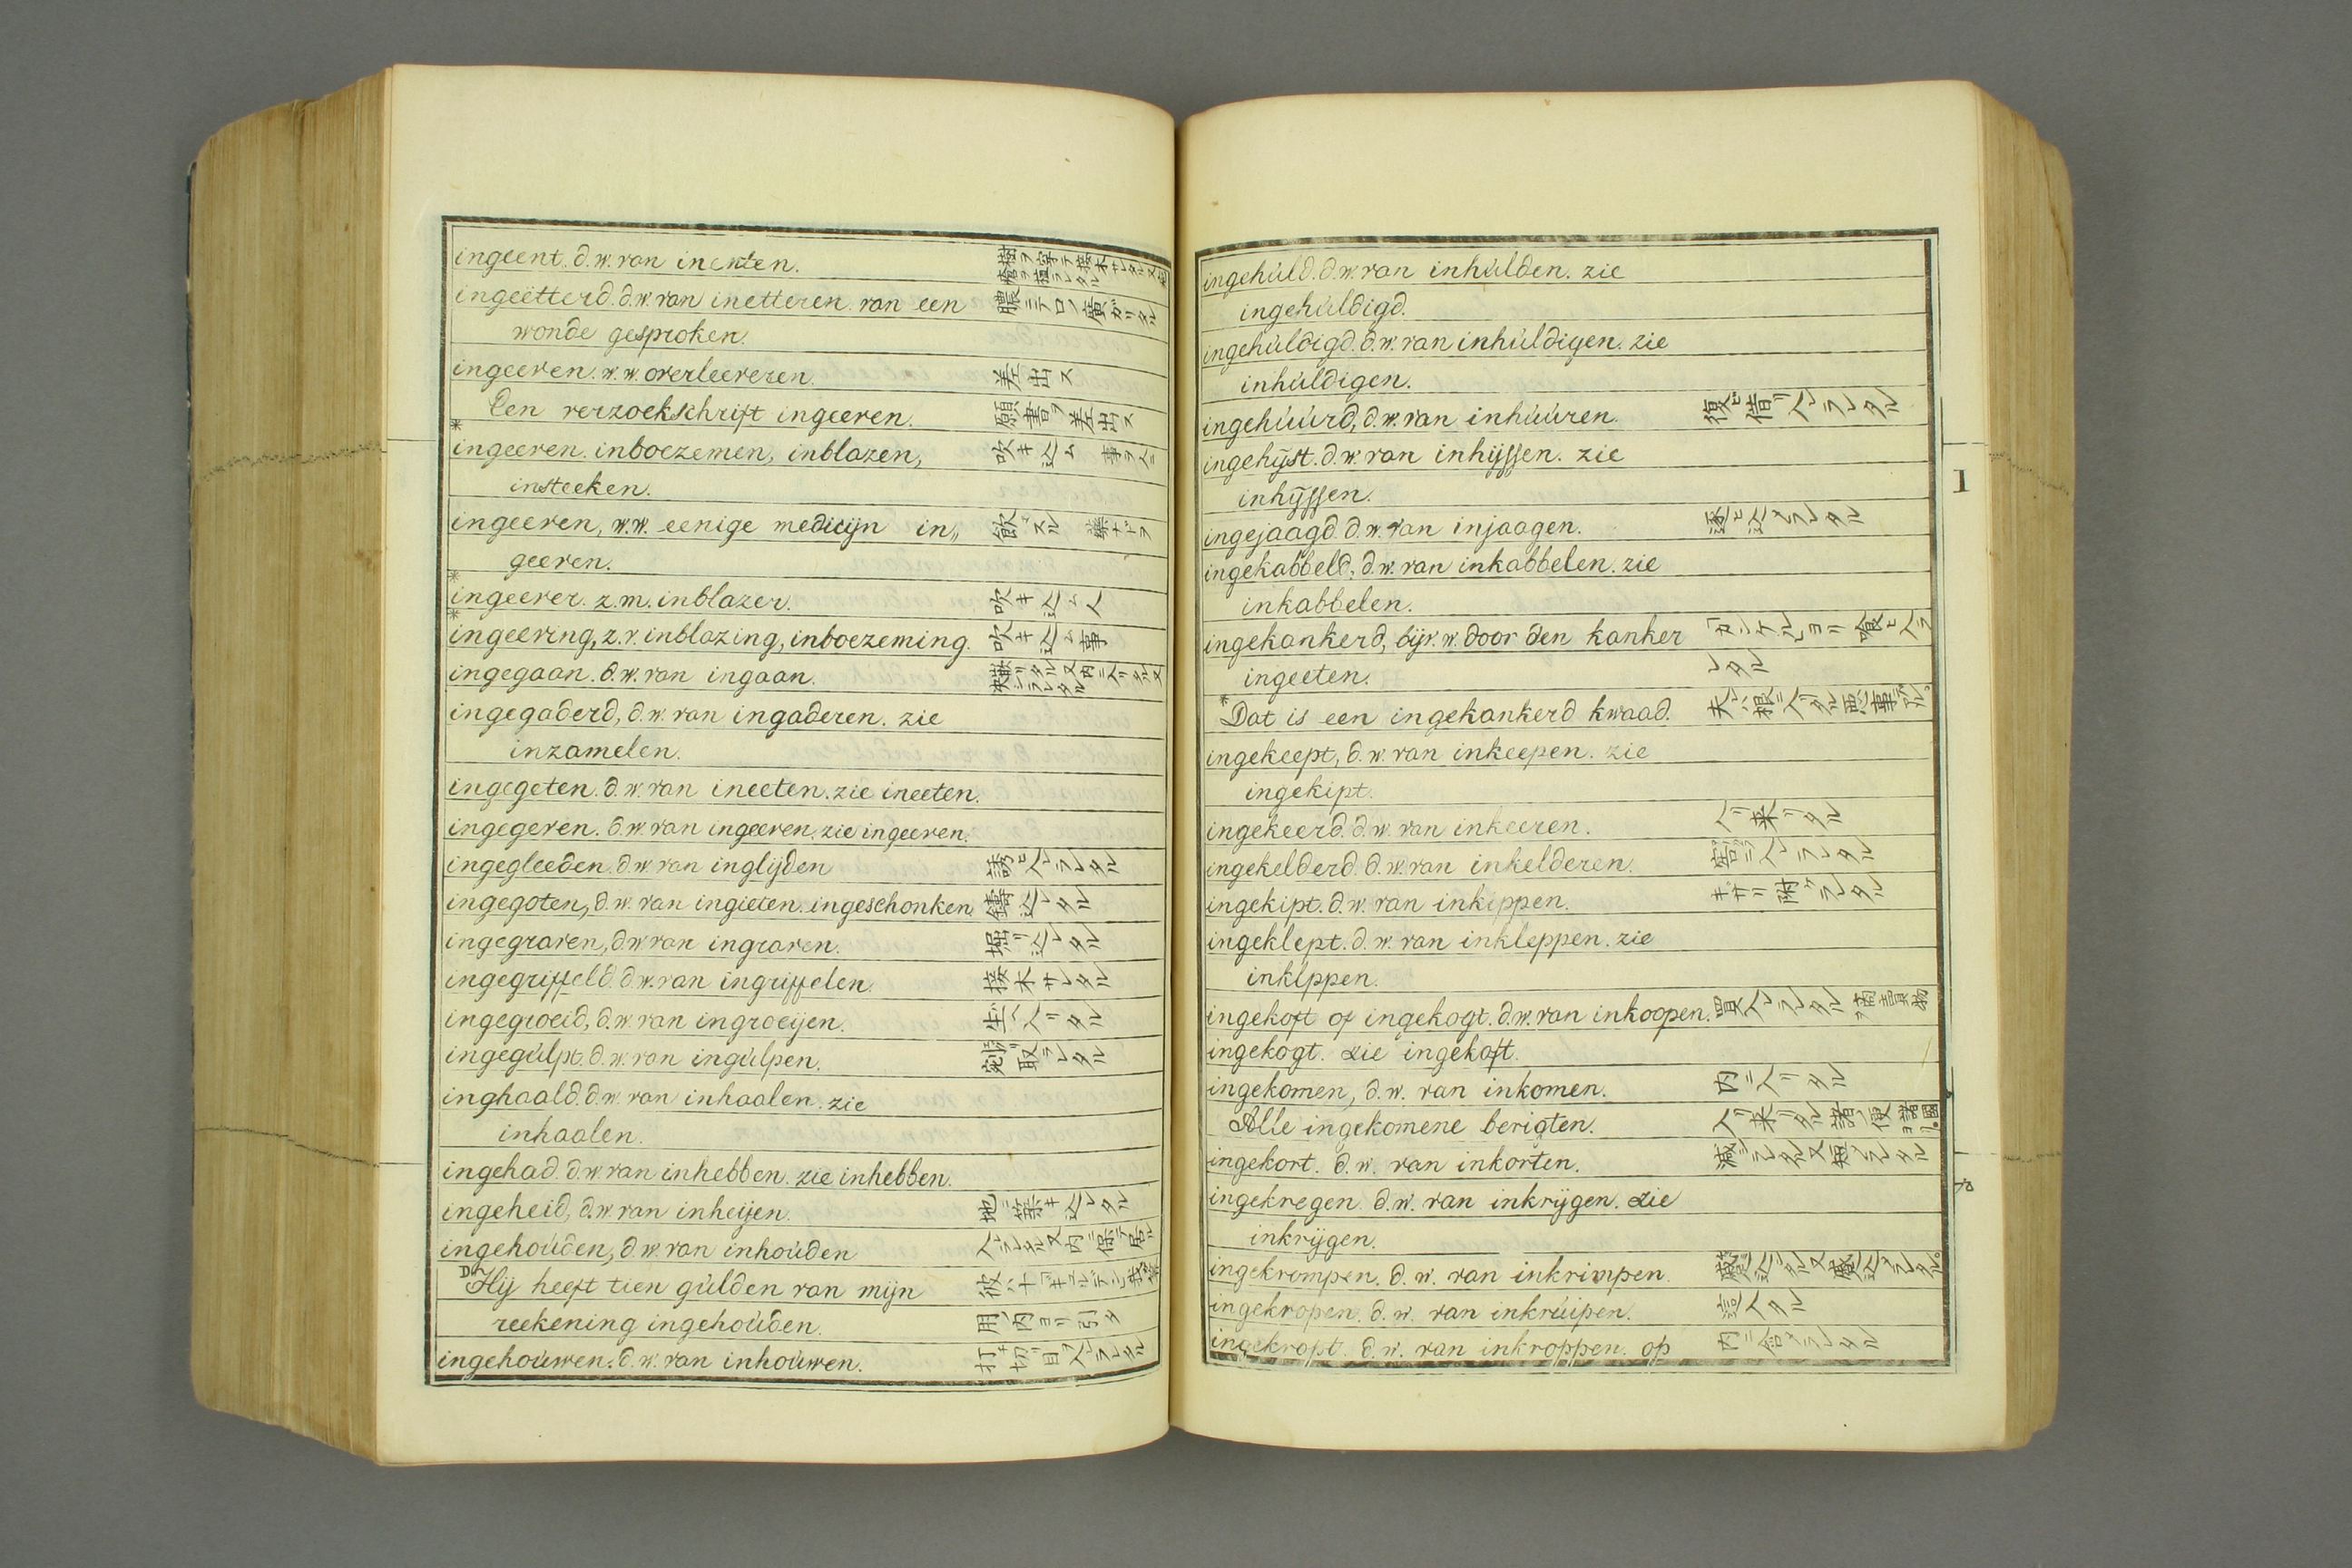 ingeent. d. w. van inenten.
ingeëtterd. d. w. van inetteren. van een 膿テ口ノ廣ガリタル
wonde gesproken.
ingeeven. w. w. overleeveren. 差出ス
Een verzoekschrift ingeeven. 願書ヲ差出ス
* ingeeven. inboezemen, inblazen, 吹キ込ム
insteeken.
ingeeven, w. w. eenige medicijn in„
geeven.
* ingeever. z. m. inblazer. 吹キ込ム人
* ingeeving, z. v. inblazing, inboezeming. 吹キ込ム事
ingegaan. d. w. van ingaan.
ingegaderd, d. w. van ingaderen. zie
inzamelen.
ingegeten. d. w. van ineeten. zie ineeten.
ingegeven. d. w. van ingeeven. zie ingeeven.
ingegleeden. d. w. van inglijden 誘ヒ入レラレタル
ingegoten, d. w. van ingieten. ingeschonken 鑄込レタル
ingegraven, d. w. van ingraven. 堀リ込レタル
ingegriffeld. d. w. van ingriffelen. 接木サレタル
ingegroeid, d. w. van ingroeijen. 生ヘ入リタル
ingegulpt. d. w. van ingulpen. 取ラレタル
inghaald. d. w. van inhaalen. zie
inhaalen.
ingehad. d. w. van inhebben. zie inhebben.
ingeheid, d. w. van inheijen. 地ニ築キ込レタル
ingehouden, d. w. van inhouden
Hij heeft tien gulden van mijn
reekening ingehouden. 用ノ内ヨリ引タ
ingehouwen. d. w. van inhouwen.
ingehuld. d. w. van inhulden. zie
ingehuldigd.
ingehuldigd. d. w. van inhuldigen. zie
inhuldigen.
ingehuurd, d. w. van inhuuren. 復ビ借リ入レラレタル
ingehijst. d. w. van inhijssen. zie
inhijssen.
1
ingejaagd. d. w. van injaagen. 逐ヒ込メラレタル
ingekabbeld, d. w. van inkabbelen. zie
inkabbelen.
ingekankerd, bijv. w. door den kanker カンケルヨリ喰ヒ入ラ
ingeeten. レタル
* Dat is een ingekankerd kwaad. 夫ハ根ニ入リタル悪事デアル
ingekeept, d. w. van inkeepen. zie
ingekipt.
ingekeerd. d. w. van inkeeren. 入リ来リタル
ingekelderd. d. w. van inkelderen. 窖ニ入レラレタル
ingekipt. d. w. van inkippen. キサリ附ラレタル
ingeklept. d. w. van inkleppen. zie
inklppen.
ingekoft of ingekogt. d. w. van inkoopen. 買入レラレタル
ingekogt. zie ingekoft.
ingekomen, d. w. van inkomen. 内ニ入リタル
Alle ingekomene berigten. 入リ来リタル諸ノ便
ingekort. d. w. van inkorten. 減ジラレタル又短クラレタル
ingekregen. d. w. van inkrijgen. zie
inkrijgen.
ingekrompen. d. w. van inkrimpen.
ingekropen. d. w. van inkruipen. 這入タル
ingekropt. d. w. van inkroppen. op 内ニ含メラレタル